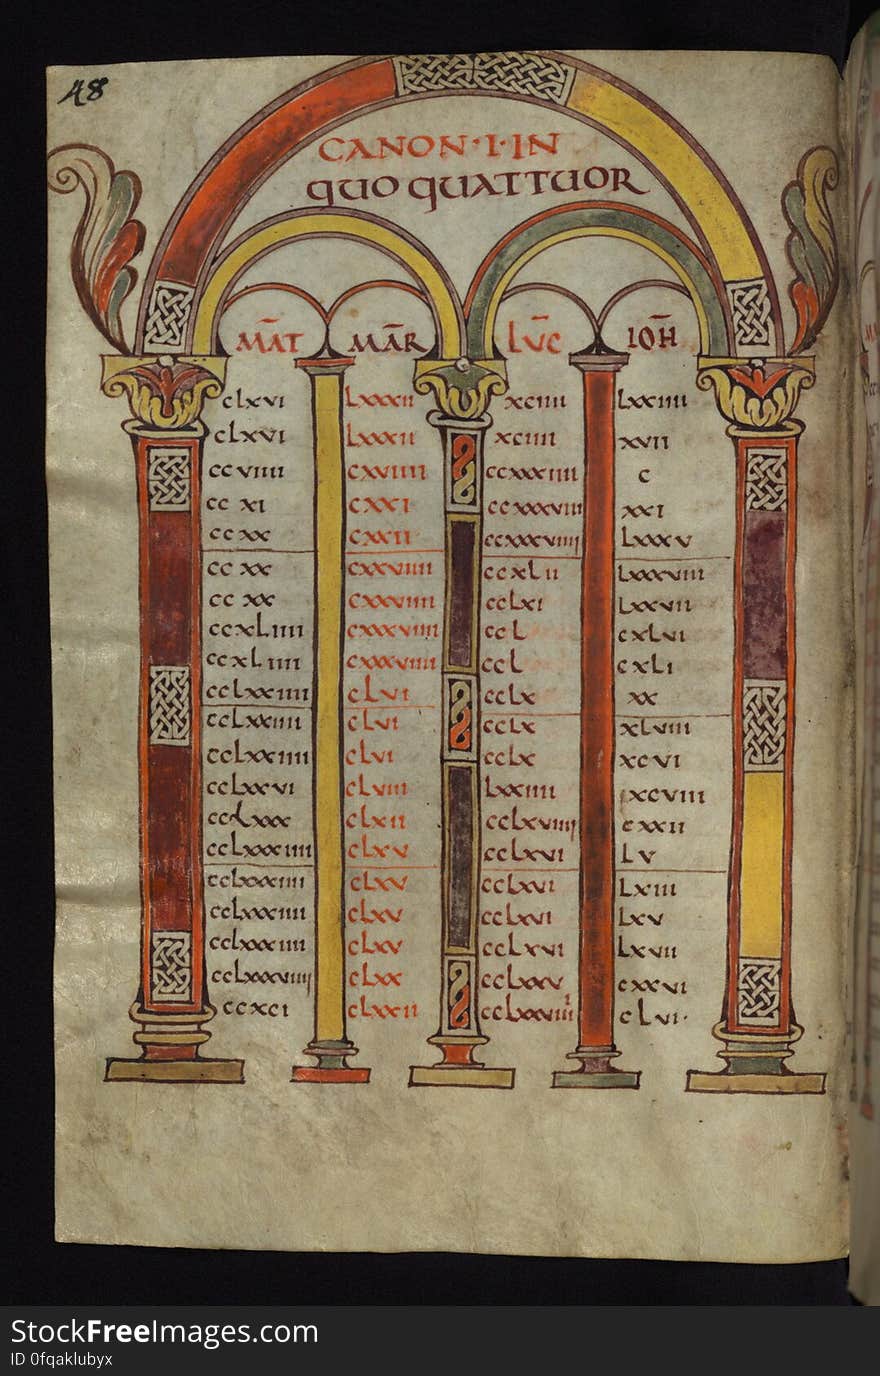 48
CANON·I·IN
QUO QUATTUOR
MAT MAR LUC IOH
clxvi lxxxii xciiii lxxiiii
clxvi lxxxii xciiii xvii
ccviiii cxviiii ccxxxiiii c
cc xi cxxi ccxxxviii xxi
cc xx cxxii ccxxxviiii lxxxv
cc xx cxxviiii ccxlii lxxxviii
cc xx cxxviiii cclxi lxxvii
ccxliiii cxxxviiii ccl cxlvi
ccxliiii cxxxviiii ccl cxli
cclxxiiii clvi cclx xx
cclxxiiii clvi cclx xlviii
cclxxiiii clvi cclx xcvi
cclxxvi clviii lxxiiii xcviii
cclxxx clxii cclxviiii cxxii
cclxxxiiii clxv cclxvi lv
cclxxxiiii clxv cclxvi lxiii
cclxxxiiii clxv cclxvi lxv
cclxxxiiii clxv cclxvi lxvii
cclxxxviiii clxx cclxxv cxxvi
ccxci clxxii cclxxviiii clvi·
StockFreeImages.com
ID 0fqaklubyx